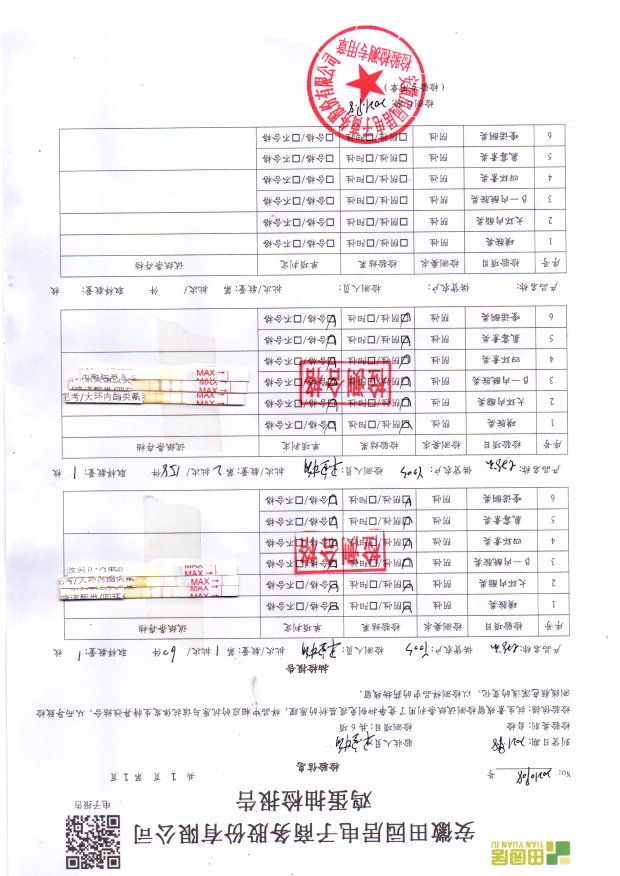 田园居
TIAN YUAN JU
安徽田园居电子商务股份有限公司
鸡蛋抽检报告
电子报告
No: 20210908 号
共 1 页 第 1 页
检验信息
到货日期: 2021.9.8
验收人员:
检验类别: 自检
检测项目: 共 6 项
检验依据: 抗生素残留检测试纸条利用了竞争抑制免疫层析的原理,样品中相应的抗原与该抗体发生特异性结合,从而导致检
测线颜色深浅的变化,以检测样品中的药物残留。
抽检报告
产品名称: 供货农户: 检测人员: 批次/数量: 第 1 批次/ 60 件 取样数量: 1 枚
序号 检验项目 检测要求 检验结果 单项判定 试纸条存档
1 磺胺类 阴性 ☑阴性/□阳性 ☑合格/□不合格
2 大环内酯类 阴性 ☑阴性/□阳性 ☑合格/□不合格
3 β—内酰胺类 阴性 ☑阴性/□阳性 ☑合格/□不合格
4 四环素类 阴性 ☑阴性/□阳性 ☑合格/□不合格
5 氟霉素类 阴性 ☑阴性/□阳性 ☑合格/□不合格
6 喹诺酮类 阴性 ☑阴性/□阳性 ☑合格/□不合格
检测合格
MAX
MAX
MAX
产品名称: 供货农户: 检测人员: 批次/数量: 第 2 批次/ 158 件 取样数量: 1 枚
序号 检验项目 检测要求 检验结果 单项判定 试纸条存档
1 磺胺类 阴性 ☑阴性/□阳性 ☑合格/□不合格
2 大环内酯类 阴性 ☑阴性/□阳性 ☑合格/□不合格
3 β—内酰胺类 阴性 ☑阴性/□阳性 ☑合格/□不合格
4 四环素类 阴性 ☑阴性/□阳性 ☑合格/□不合格
5 氟霉素类 阴性 ☑阴性/□阳性 ☑合格/□不合格
6 喹诺酮类 阴性 ☑阴性/□阳性 ☑合格/□不合格
检测合格
MAX
MAX
MAX
MAX
产品名称: 供货农户: 检测人员: 批次/数量: 第 批次/ 件 取样数量: 枚
序号 检验项目 检测要求 检验结果 单项判定 试纸条存档
1 磺胺类 阴性 □阴性/□阳性 □合格/□不合格
2 大环内酯类 阴性 □阴性/□阳性 □合格/□不合格
3 β—内酰胺类 阴性 □阴性/□阳性 □合格/□不合格
4 四环素类 阴性 □阴性/□阳性 □合格/□不合格
5 氟霉素类 阴性 □阴性/□阳性 □合格/□不合格
6 喹诺酮类 阴性 □阴性/□阳性 □合格/□不合格
检测日期: 2021.9.8
(检验章)
安徽田园居电子商务股份有限公司
检验检测专用章